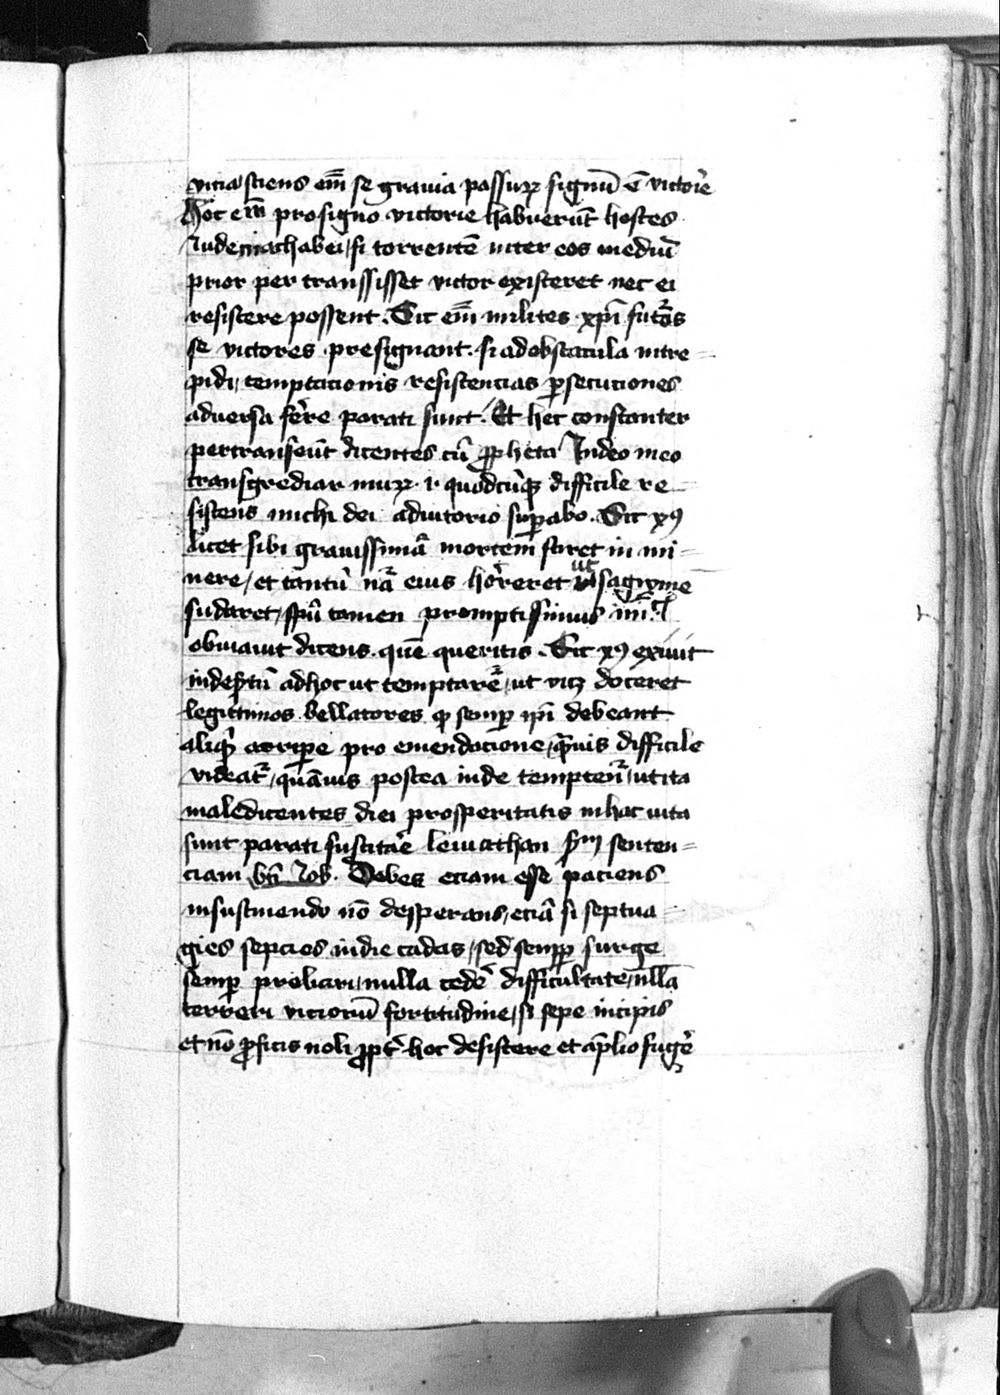 vicia sciens em̄ se grauia passurꝝ signū ē victor̄ie
Hoc em̄ pro signo victorie habuerūt hostes
Iude machabei / si torrentē inter eos mediū
prior per transsisset victor existeret nec ei
resistere possent . Sic em̄ milites xp̄i futōs
se victores presignant . si ad obstacula intre=
pidi / temptacionis resistencias ꝑsecuciones
aduersa fēre parati sunt / Et hec constanter
pertranseūt dicentes cū ꝓpheta In deo meo
transgrediar murꝝ .i. quodcūqꝫ difficile re
sistens michi dei adiutorio suꝑabo . Sic xp̄ꝯ
licet sibi grauissimā mortem staret in mi=
nere / et tantū nā eius hor̄reret ut sagwinē
sudaret / spū tamen promptissimus
obuiauit dicens . quē queritis . Sic xp̄ꝯ exiuit
in desertū ad hoc ut temptarē / ut vicꝫ doceret
legittimos bellatores ꝙ semꝑ ip̄i debeant
aliqd̄ arripe pro emendacione / qͣuis difficile
videatᷣ / quāuis postea inde temptenᷣ / ut ita
maledicentes diei prosperitatis in hac uita
sunt parati suscitāe leuiathan ẜm senten=
ciam bt̄i Iob . Debes eciam esse paciens
in sustinendo nō desperans / eciā si septua=
gies sepcies in die cadas / sed semꝑ surge
semꝑ probari / nulla cedē difficultate / nllā
terreri viciorū fortitudine / si sepe incipis
et nō ꝓficis noli ꝓpt̄ hoc desistere et ap̄lio fugē